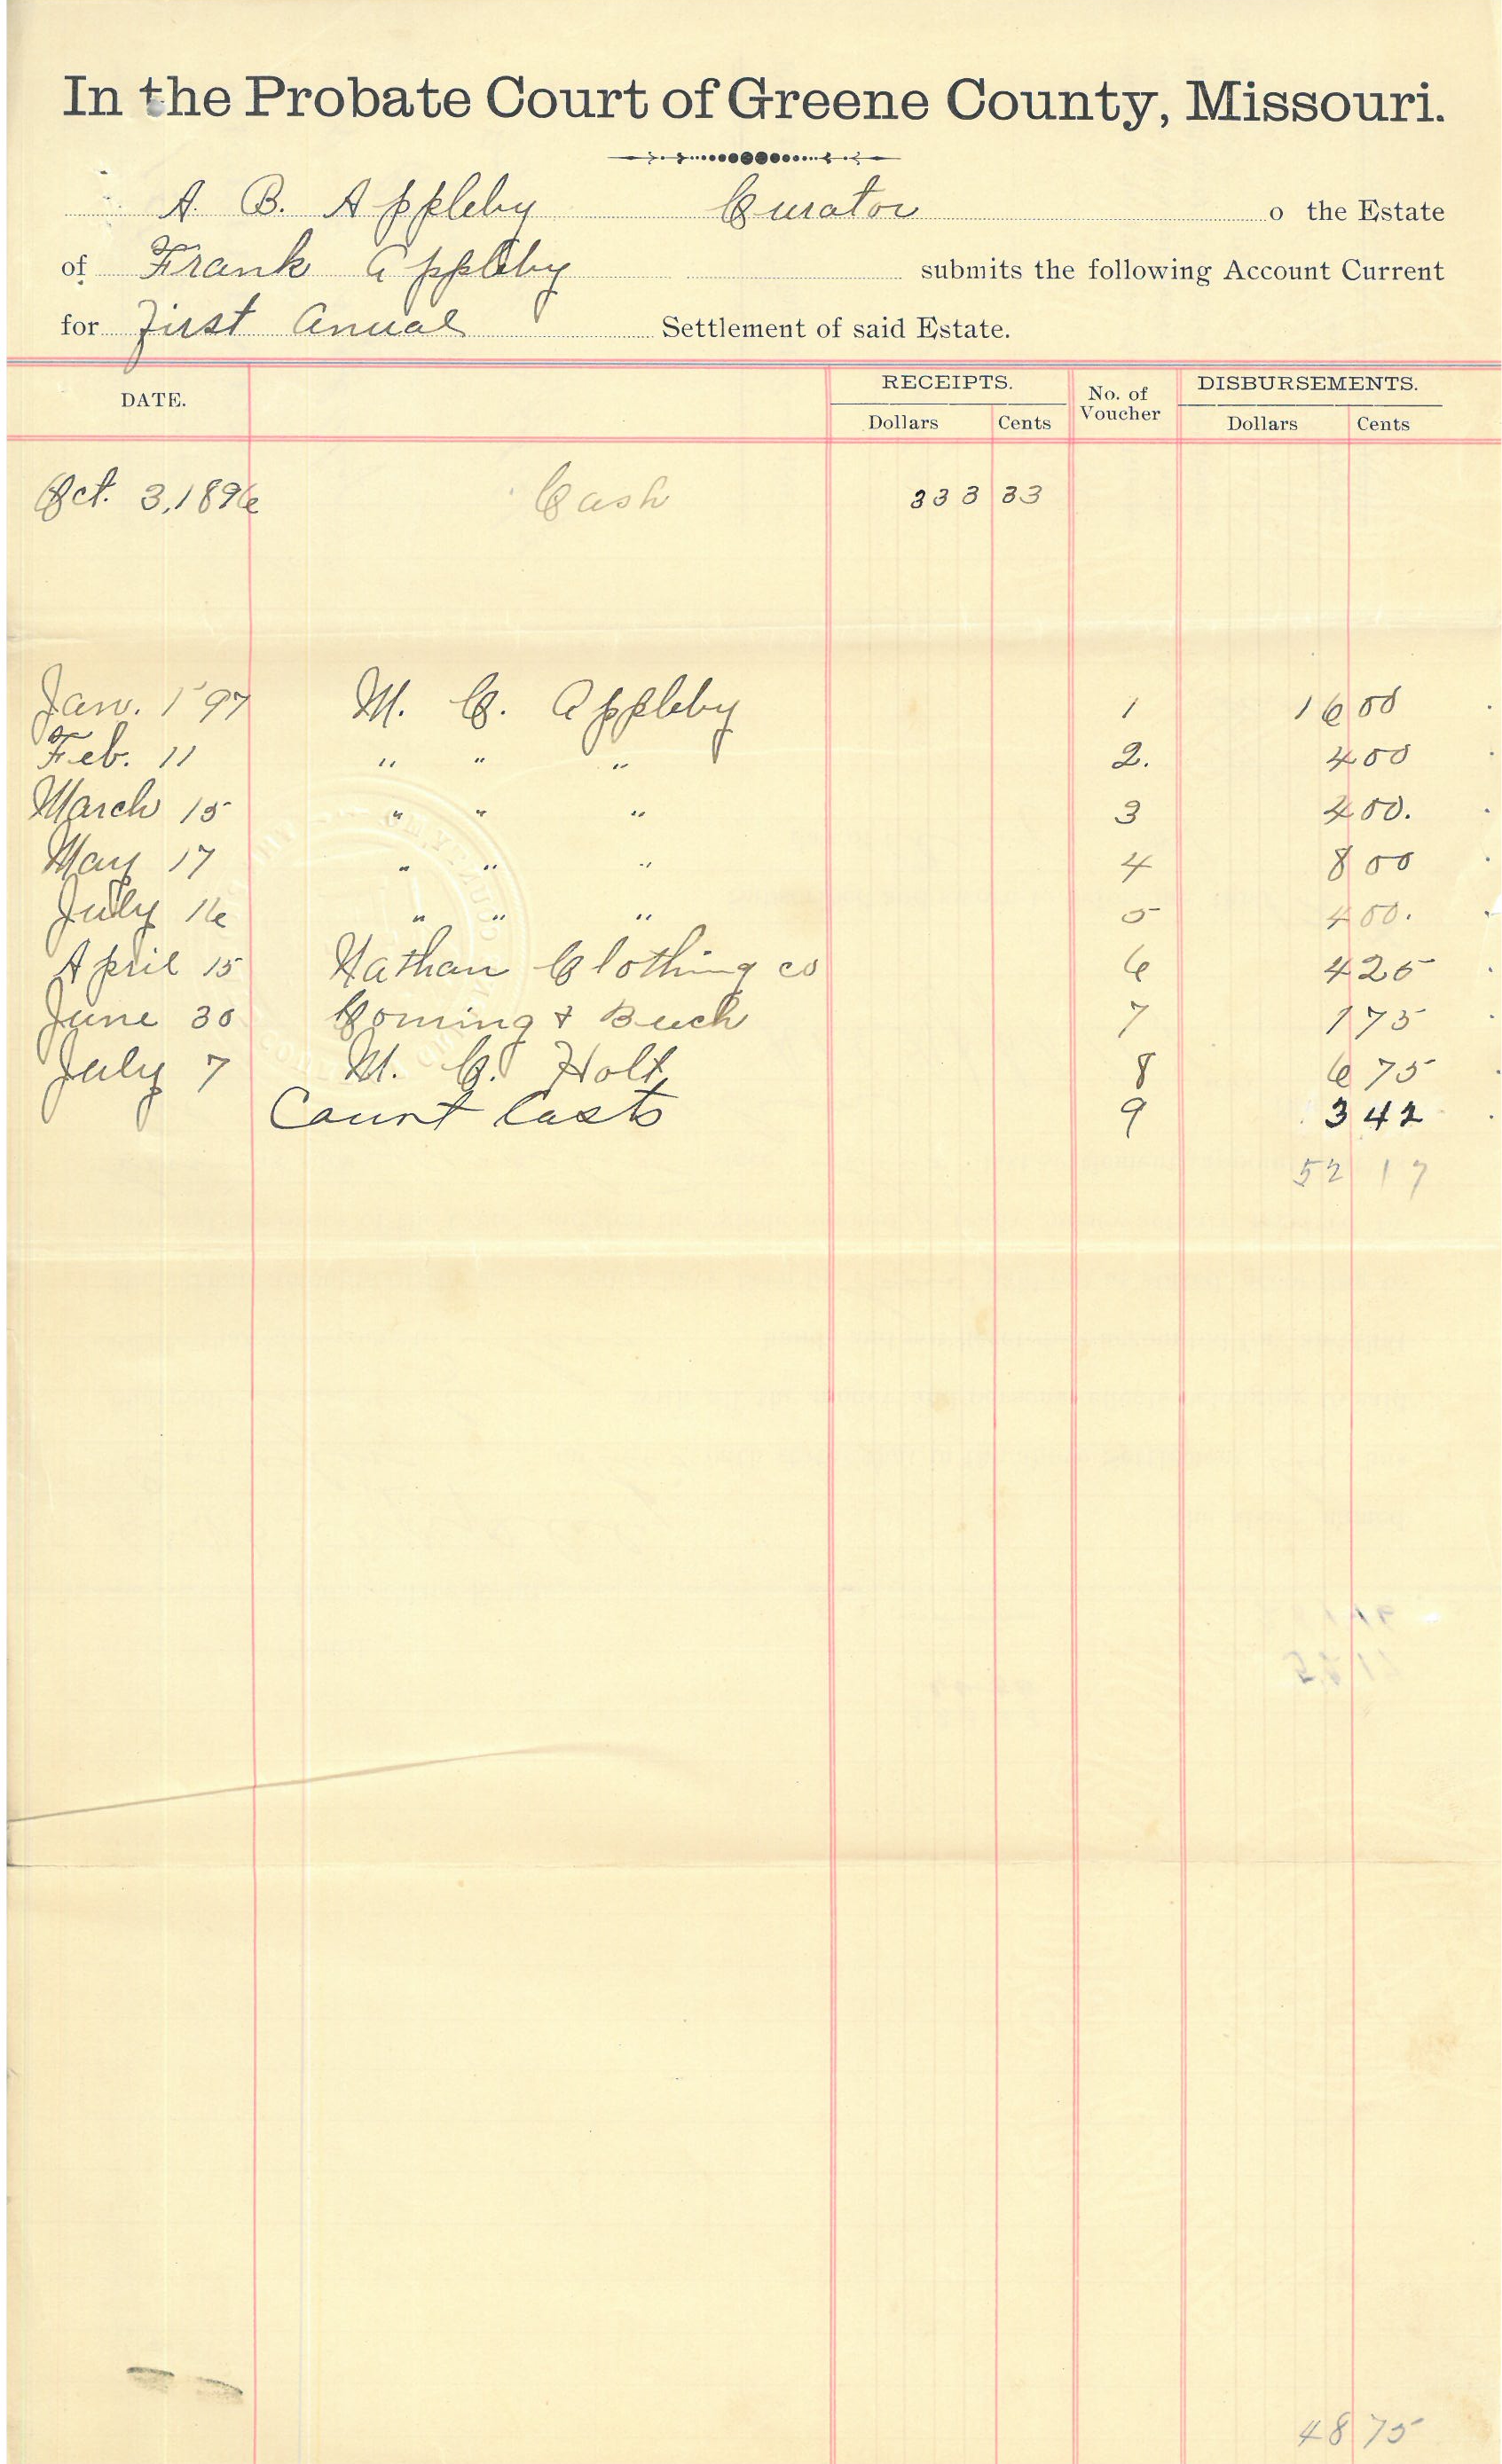 In the Probate Court of Greene County, Missouri.
A. B. Appleby Curator o the Estate
of Frank Appleby submits the following Account Current
for First Anual Settlement of said Estate.
DATE. RECEIPTS. No. of Voucher DISBURSEMENTS.
Dollars Cents Dollars Cents
Oct. 3, 1896 Cash 333 33
Jan. 1 '97 M. C. Appleby 1 16 00
Feb. 11 " " " 2. 4 00
March 15 " " " 3 4 00.
May 17 " " " 4 8 00
July 16 " " " 5 4 00.
April 15 Nathan Clothing co 6 4 25
June 30 & 7 1 75
July 7 M. C. Holt 8 6 75
Court Costs 9 3 42
52 17
48 75